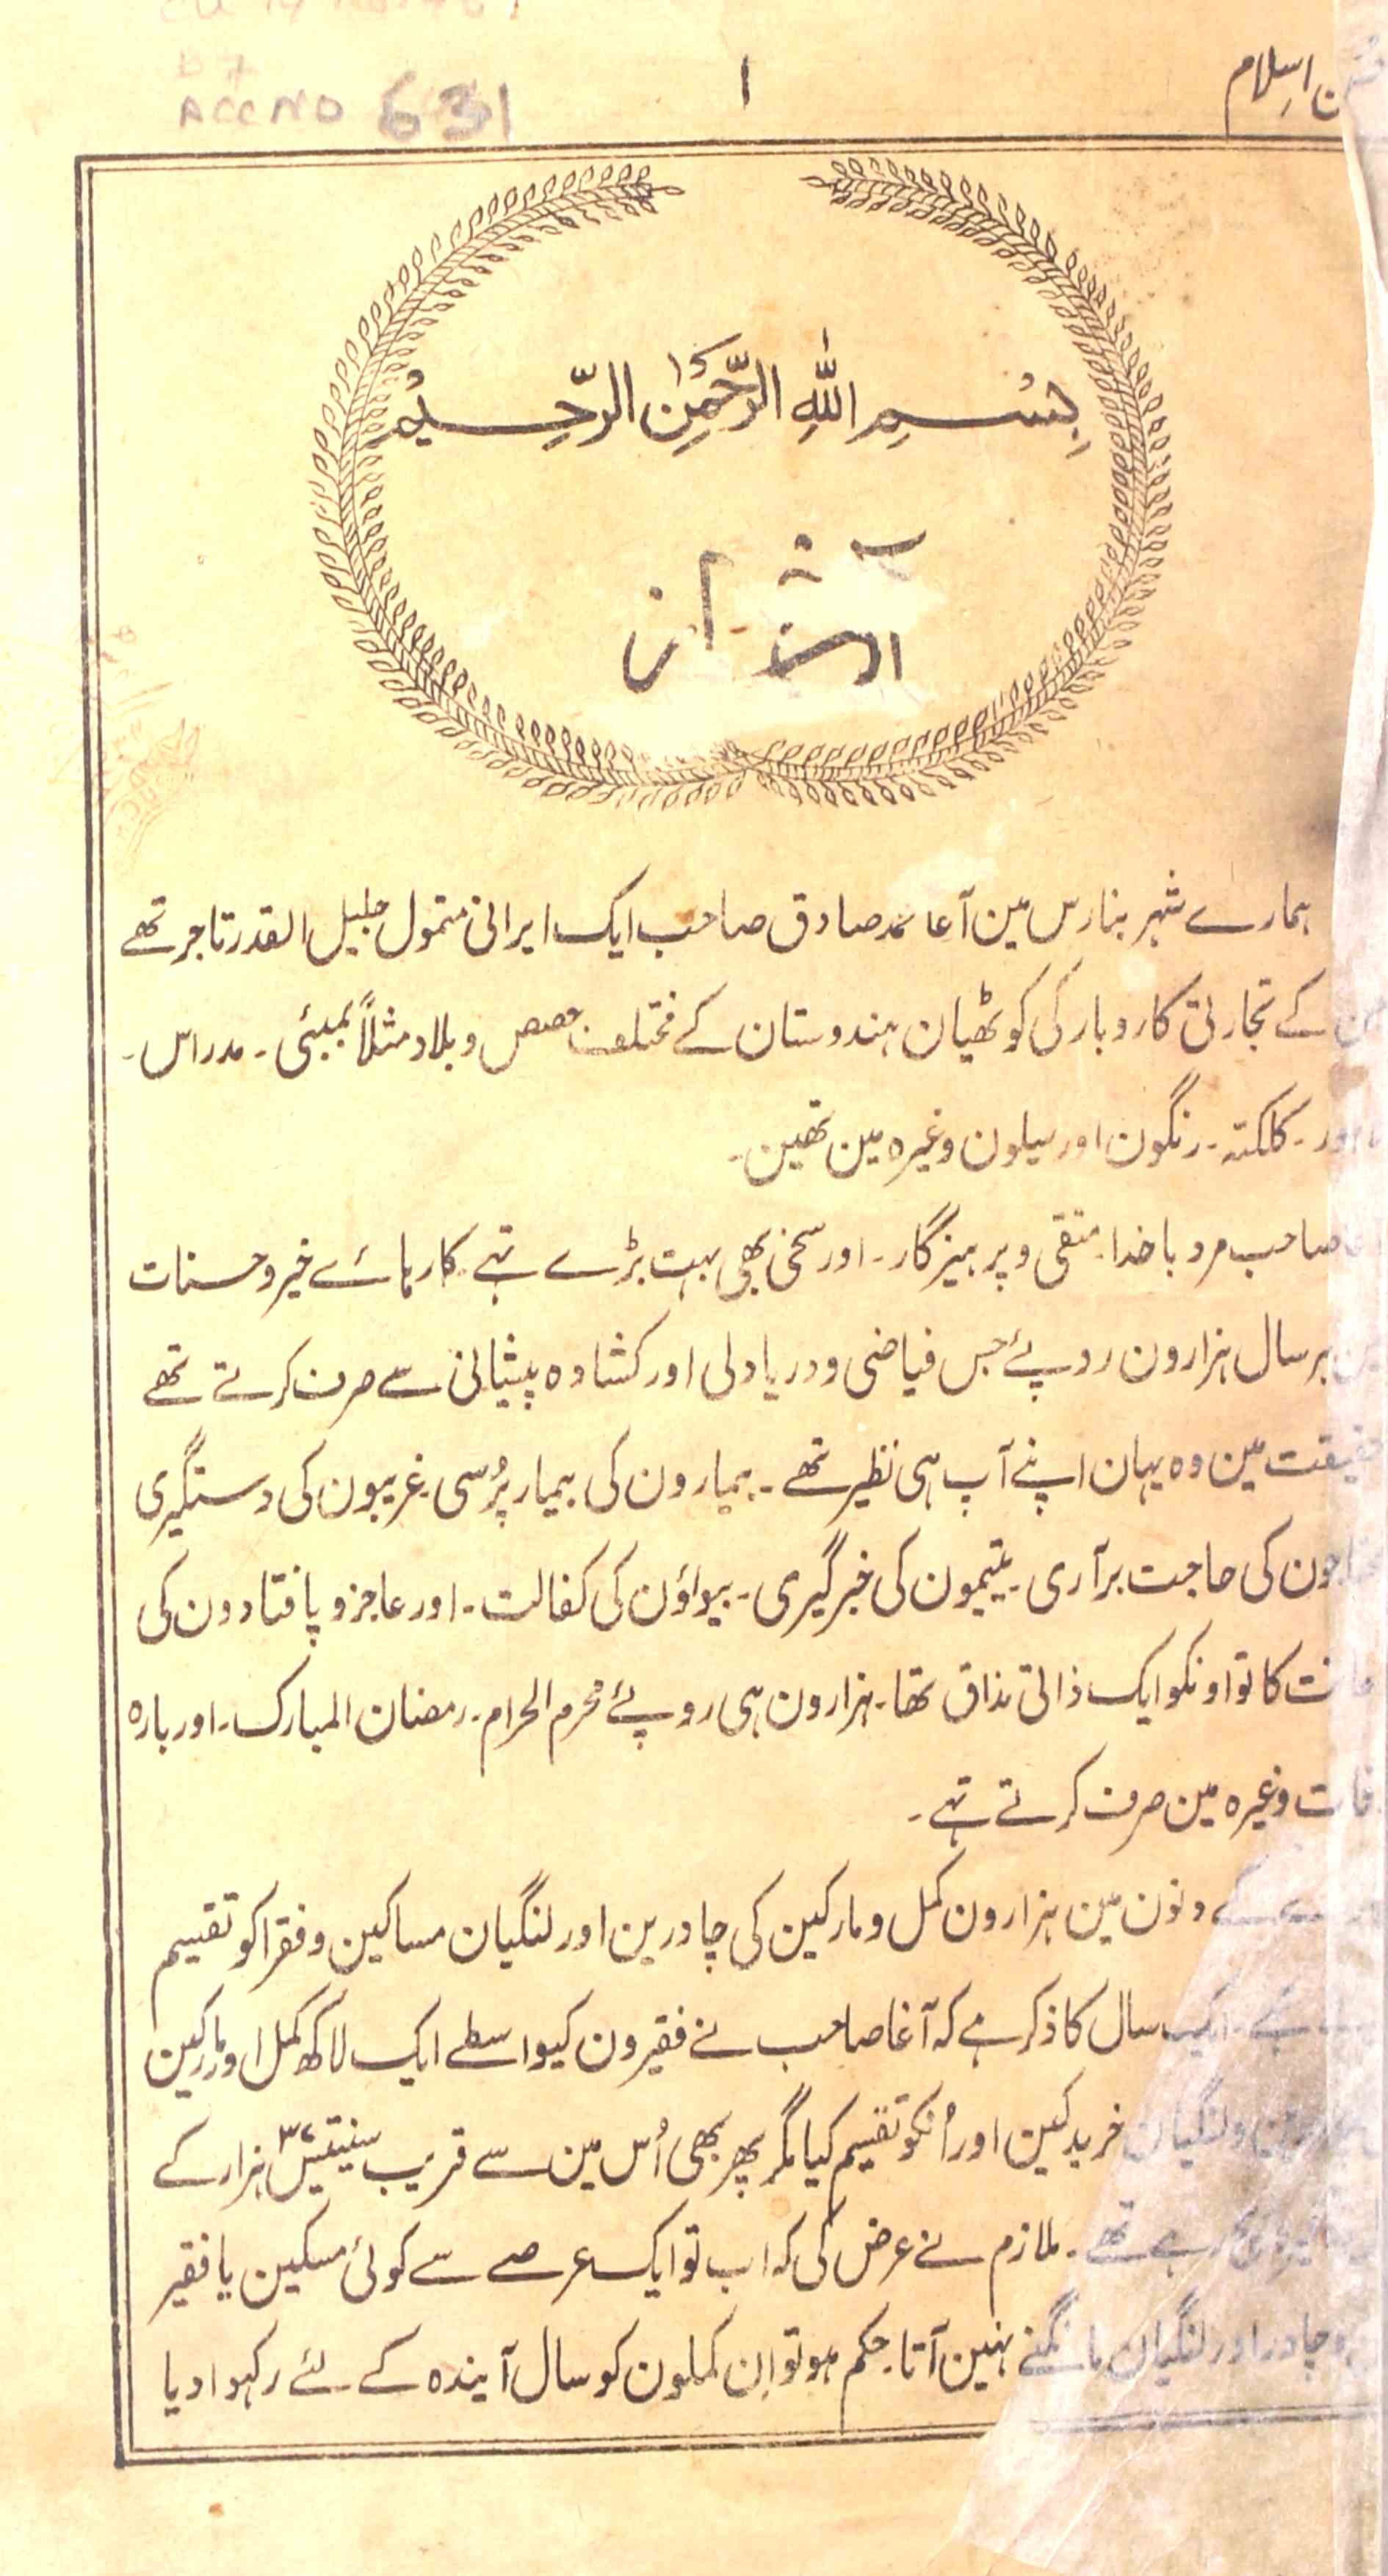 ACC NO 631
۱
اسلام
بِسْمِ اللّٰهِ الرَّحْمٰنِ الرَّحِيْمِ
ہمارے شہر بنارس مین آغا محمد صادق صاحب ایک ایرانی متمول جلیل القدر تاجر تھے
کے تجارتی کاروبار کی کوٹھیان ہندوستان کے مختلف حصص و بلاد مثلاً بمبئی۔ مدراس۔
کلکتہ۔ رنگون اور سیلون وغیرہ مین تھین۔
صاحب مرد باخدا۔ متقی و پرہیزگار۔ اور سخی بھی بہت بڑے تہے۔ کارہائے خیر و حسنات
ہر سال ہزارون روپئے جس فیاضی و دریا دلی اور کشادہ پیشانی سے صرف کرتے تھے
حقیقت مین وہ یہان اپنے آپ ہی نظیر تھے۔ بیمارون کی بیمار پُرسی۔ غریبون کی دستگیری
کی حاجت برآری۔ یتیمون کی خبرگیری۔ بیواؤن کی کفالت۔ اور عاجز و پا فتادون کی
کا تو اونکو ایک ذاتی مذاق تھا۔ ہزارون ہی روپئے محرم الحرام۔ رمضان المبارک۔ اور بارہ
وفات وغیرہ مین صرف کرتے تہے۔
کے دنون مین ہزارون کمل و مارکین کی چادرین اور لنگیان مساکین و فقرا کو تقسیم
ایک سال کا ذکر ہے کہ آغا صاحب نے فقیرون کیواسطے ایک لاکھ کمل اور مارکین
و لنگیان خرید کین اور اُنکو تقسیم کیا مگر پھر بھی اُس مین سے قریب سینتیس ۳۷ ہزار کے
رہے تھے۔ ملازم نے عرض کی کہ اب تو ایک عرصے سے کوئی مسکین یا فقیر
چادر اور لنگیان مانگنے نہین آتا۔ حکم ہو تو اِن کملون کو سال آیندہ کے لئے رکہوا دیا